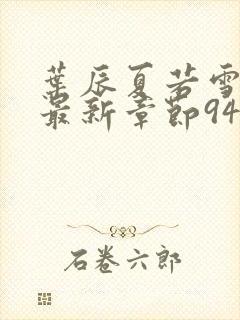 葉辰夏若雪
最新章節94
石卷六郎